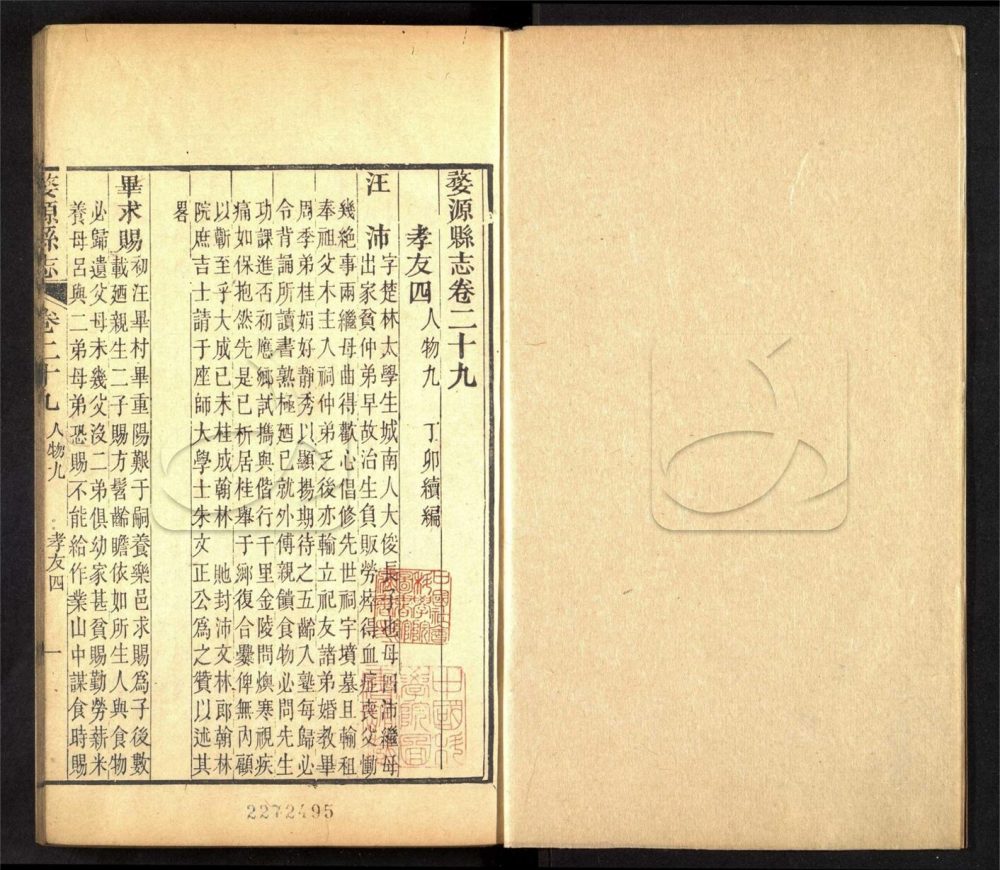 婺源縣志卷二十九
孝友四 人物九 丁卯續編
汪 沛 字楚林太學生城南人大俊長子也母 沛繼母
出家貧仲弟早故治生負販勞瘁得血症喪父慟
幾絶事兩繼母曲得歡心倡修先世祠宇墳墓且輸租
奉祖父木主入祠仲弟乏後亦輸立祀友諧弟婚教畢
周季弟桂娟好靜秀以顯揚期待之五齡入塾每歸必
令背誦所讀書熟極廼已就外傅親饋食物必問先生
功課進否初應鄉試攜與偕行千里金陵問燠寒視疾
痛如保抱然先是已析居桂舉于鄉復合爨俾無內顧
以蘄至乎大成已未桂成翰林 貤封沛文林郎翰林
院庶吉士請于座師大學士朱文正公爲之贊以述其
畧
畢求賜 初汪畢村畢重陽艱于嗣養樂邑求賜爲子後數
載廼親生二子賜方髫齡瞻依如所生人與食物
必歸遺父母未幾父沒二弟俱幼家甚貧賜勤勞薪米
養母呂與二弟母弟恐賜不能給作業山中謀食時賜
婺源縣志 卷二十九 人物九 孝友四 一
2272495